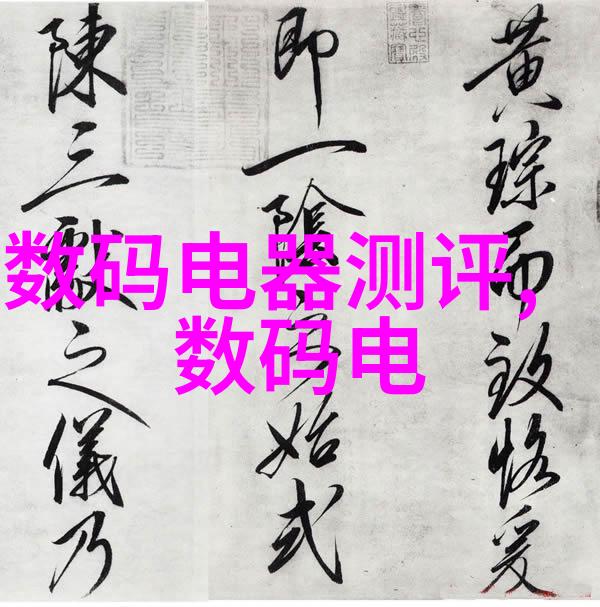 黄琮而致恪爰
即一陰始式
陳三獻之儀乃
数码电器测评,
数码电